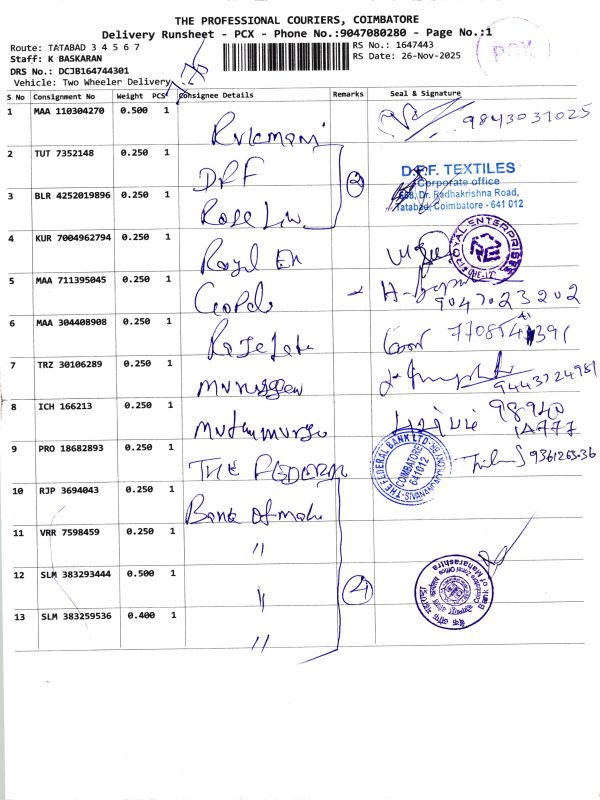 THE PROFESSIONAL COURIERS, COIMBATORE
Delivery Runsheet - PCX - Phone No.:9047080280 - Page No.:1
Route: TATABAD 3 4 5 6 7
RS No.: 1647443
PCX
Staff: K BASKARAN
RS Date: 26-Nov-2025
DRS No.: DCJB164744301
Vehicle: Two Wheeler Delivery
S No Consignment No Weight PCS Consignee Details Remarks Seal & Signature
1 MAA 110304270 0.500 1 Rukmani 9843031025
2 TUT 7352148 0.250 1 DPF D.P.F. TEXTILES
Corporate office
Dr. Radhakrishna Road,
Tatabad, Coimbatore - 641 012
3 BLR 4252019896 0.250 1 Rose Liw
2
4 KUR 7004962794 0.250 1 Royal En ROYAL ENTERPRISES
5 MAA 711395045 0.250 1 Gopal 9047023202
6 MAA 304408908 0.250 1
7 TRZ 30106289 0.250 1 Murugan
8 ICH 166213 0.250 1 Muthumurga
9 PRO 18682893 0.250 1 THE FEDERAL THE FEDERAL BANK LTD. COIMBATORE 641012
10 RJP 3694043 0.250 1 Bank of mah
11 VRR 7598459 0.250 1 "
12 SLM 383293444 0.500 1 " 4 Bank of Maharashtra
13 SLM 383259536 0.400 1 "